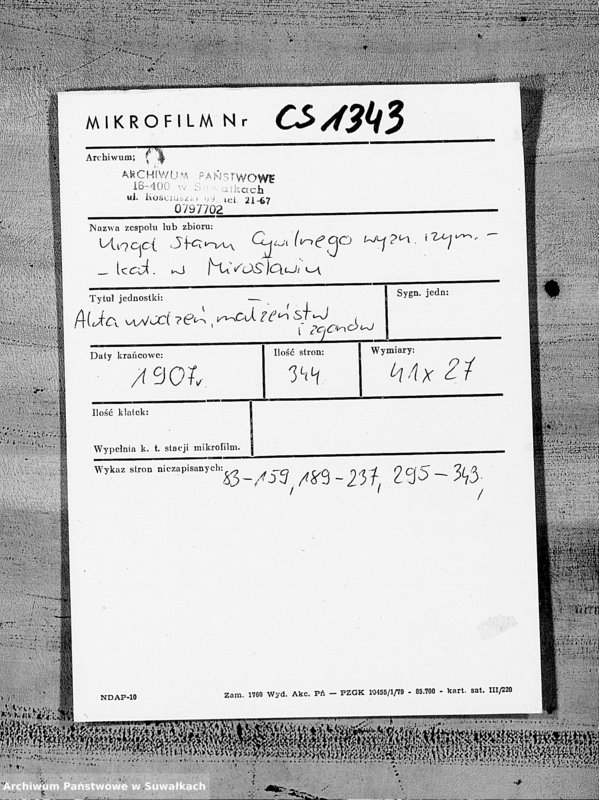 MIKROFILM Nr CS 1343
Archiwum:
ARCHIWUM PAŃSTWOWE
16-400 w Suwałkach
ul. Kościuszki 69, tel. 21-67
0797702
Nazwa zespołu lub zbioru:
Urząd Stanu Cywilnego wyzn. rzym. -
- kat. w Mirosławiu
Tytuł jednostki:
Akta urodzeń, małżeństw
i zgonów
Sygn. jedn:
Daty krańcowe:
1907r.
Ilość stron:
344
Wymiary:
41 x 27
Ilość klatek:
Wypełnia k. t. stacji mikrofilm.
Wykaz stron niezapisanych: 83-159, 189-237, 295-343,
NDAP-10
Zam. 1760 Wyd. Akc. Pń — PZGK 10455/1/79 - 85.700 - kart. sat. III/220
Archiwum Państwowe w Suwałkach